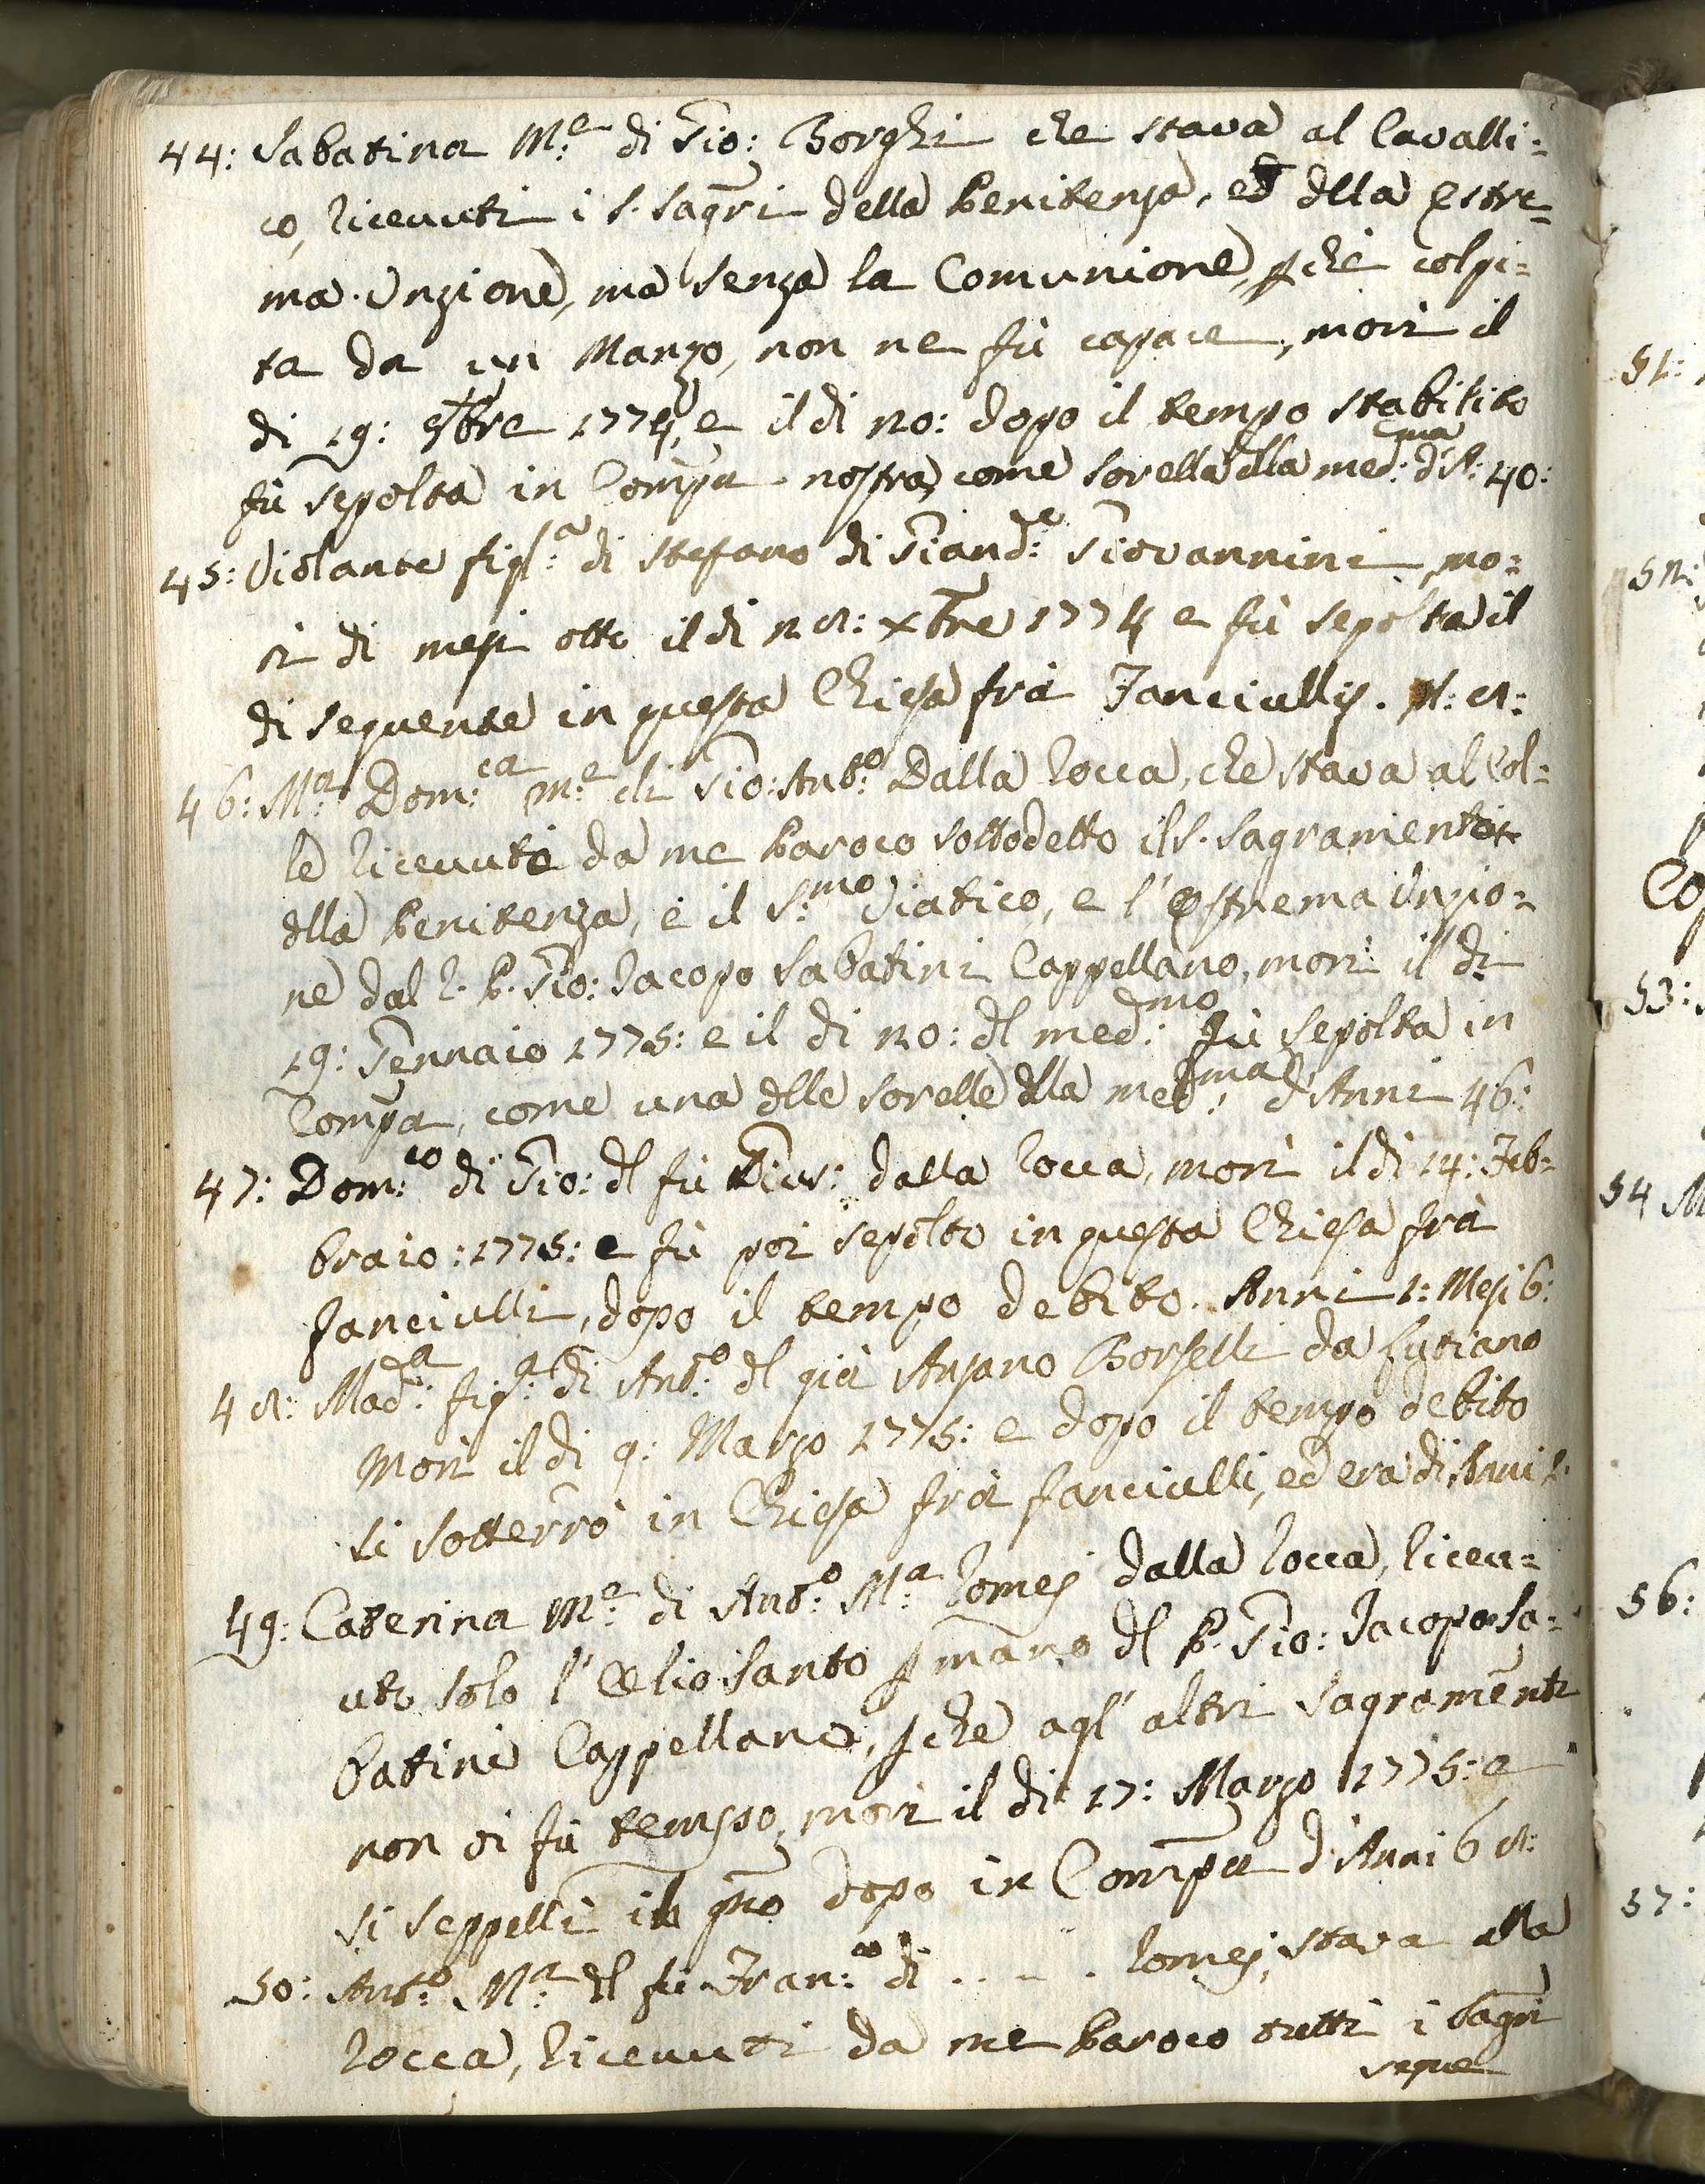 44: Sabatina M.e di Gio: Borghi che stava al Cavalli:
co, Ricevuti i S. Sagri della Penitenza, ed dlla Estre=
ma Unzione, ma senza la Comunione, p chè colpi=
ta da un Manzo, non ne fù capace, morì il
di 19: 9bre 1774, e il di 20: dopo il tempo stabilito
fù sepolta in Compa nostra, come sorella dlla med:ma d'A: 40:
45: Violante figl:a di Stefano di Giand:e Giovannini, mo=
rì di mesi otto il di 28: Xbre 1774 e fù sepolta il
di sequente in questa Chiesa frà Fanciulli. M: 8:
46: M:a Dom:ca M:e di Gio: Ant:o Dalla Rocca, che stava al Col=
le Ricevuto da me Paroco sottodetto il S. Sagramento
dlla Penitenza, e il S:mo Viatico, e l'Estrema Unzio=
ne dal R. P. Gio: Jacopo Sabatini Cappellano, morì il di
19: Gennaio 1775: e il di 20: dl med:mo fù sepolta in
Compa, come una dlle sorelle dlla med:ma d'Anni 46:
47: Dom:co di Gio: dl fù dalla Rocca, morì il di 14: Feb=
braio: 1775: e fù poi sepolto in questa Chiesa frà
fanciulli, dopo il tempo debito. Anni 1: Mesi 6:
48: Mad:a fig:a di Ant:o dl già Ansano Borselli da Lutiano
Morì il di 9: Marzo 1775: e dopo il tempo debito
si sotterrò in Chiesa frà fanciulli, ed era di Anni
49: Caterina M:e di Ant:o M:a Romei dalla Rocca, Ricev=
uto solo l'Olio Santo p mano dl P. Gio: Jacopo Sa=
batini Cappellano, p che agl'altri Sagramenti
non vi fù tempo, morì il di 17: Marzo 1775: e
si seppellì il gno dopo in Compa d'Anni 68:
50: Ant:o M:a dl fù Fran:co di . . . . Romei, stava alla
Rocca, Ricevuti da me Paroco tutti i Sagri
segue
51:
52:
Co
53:
54 M
56:
57: